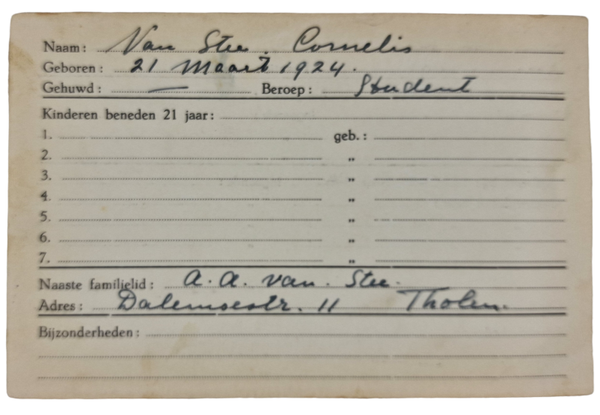 Naam: Van Stee. Cornelis
Geboren: 21 Maart 1924.
Gehuwd: — Beroep: Student
Kinderen beneden 21 jaar:
1. geb.:
2. „
3. „
4. „
5. „
6. „
7. „
Naaste familielid: A. A. van. Stee.
Adres: Dalemsestr. 11 Tholen.
Bijzonderheden: